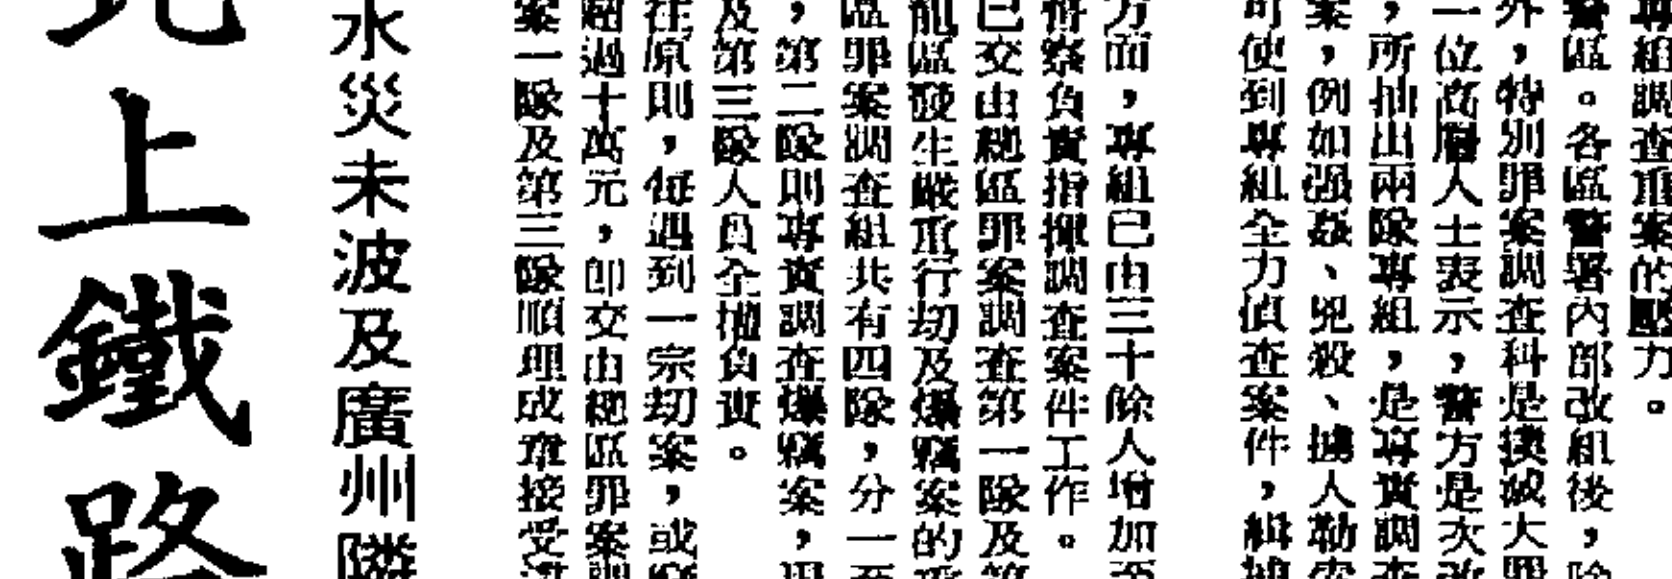 專組調查重案的壓力。
警區。各區警署內部改組後，除
外，特別罪案調查科是撲滅大罪
一位高層人士表示，警方是次改
，所抽出兩隊專組，是專責調查
案，例如强姦、兇殺、擄人勒索
可使到專組全力偵查案件，緝捕
方面，專組已由三十餘人增加至
督察負責指揮調查案件工作。
已交由總區罪案調查第一隊及第
龍區發生嚴重行劫及爆竊案的
區罪案調查組共有四隊，分一至
，第二隊則專責調查爆竊案，
及第三隊人員全權負責。
往原則，每遇到一宗劫案，或
超過十萬元，即交由總區罪案調
案一隊及第三隊順理成章接受
水災未波及廣州隣
上鐵路